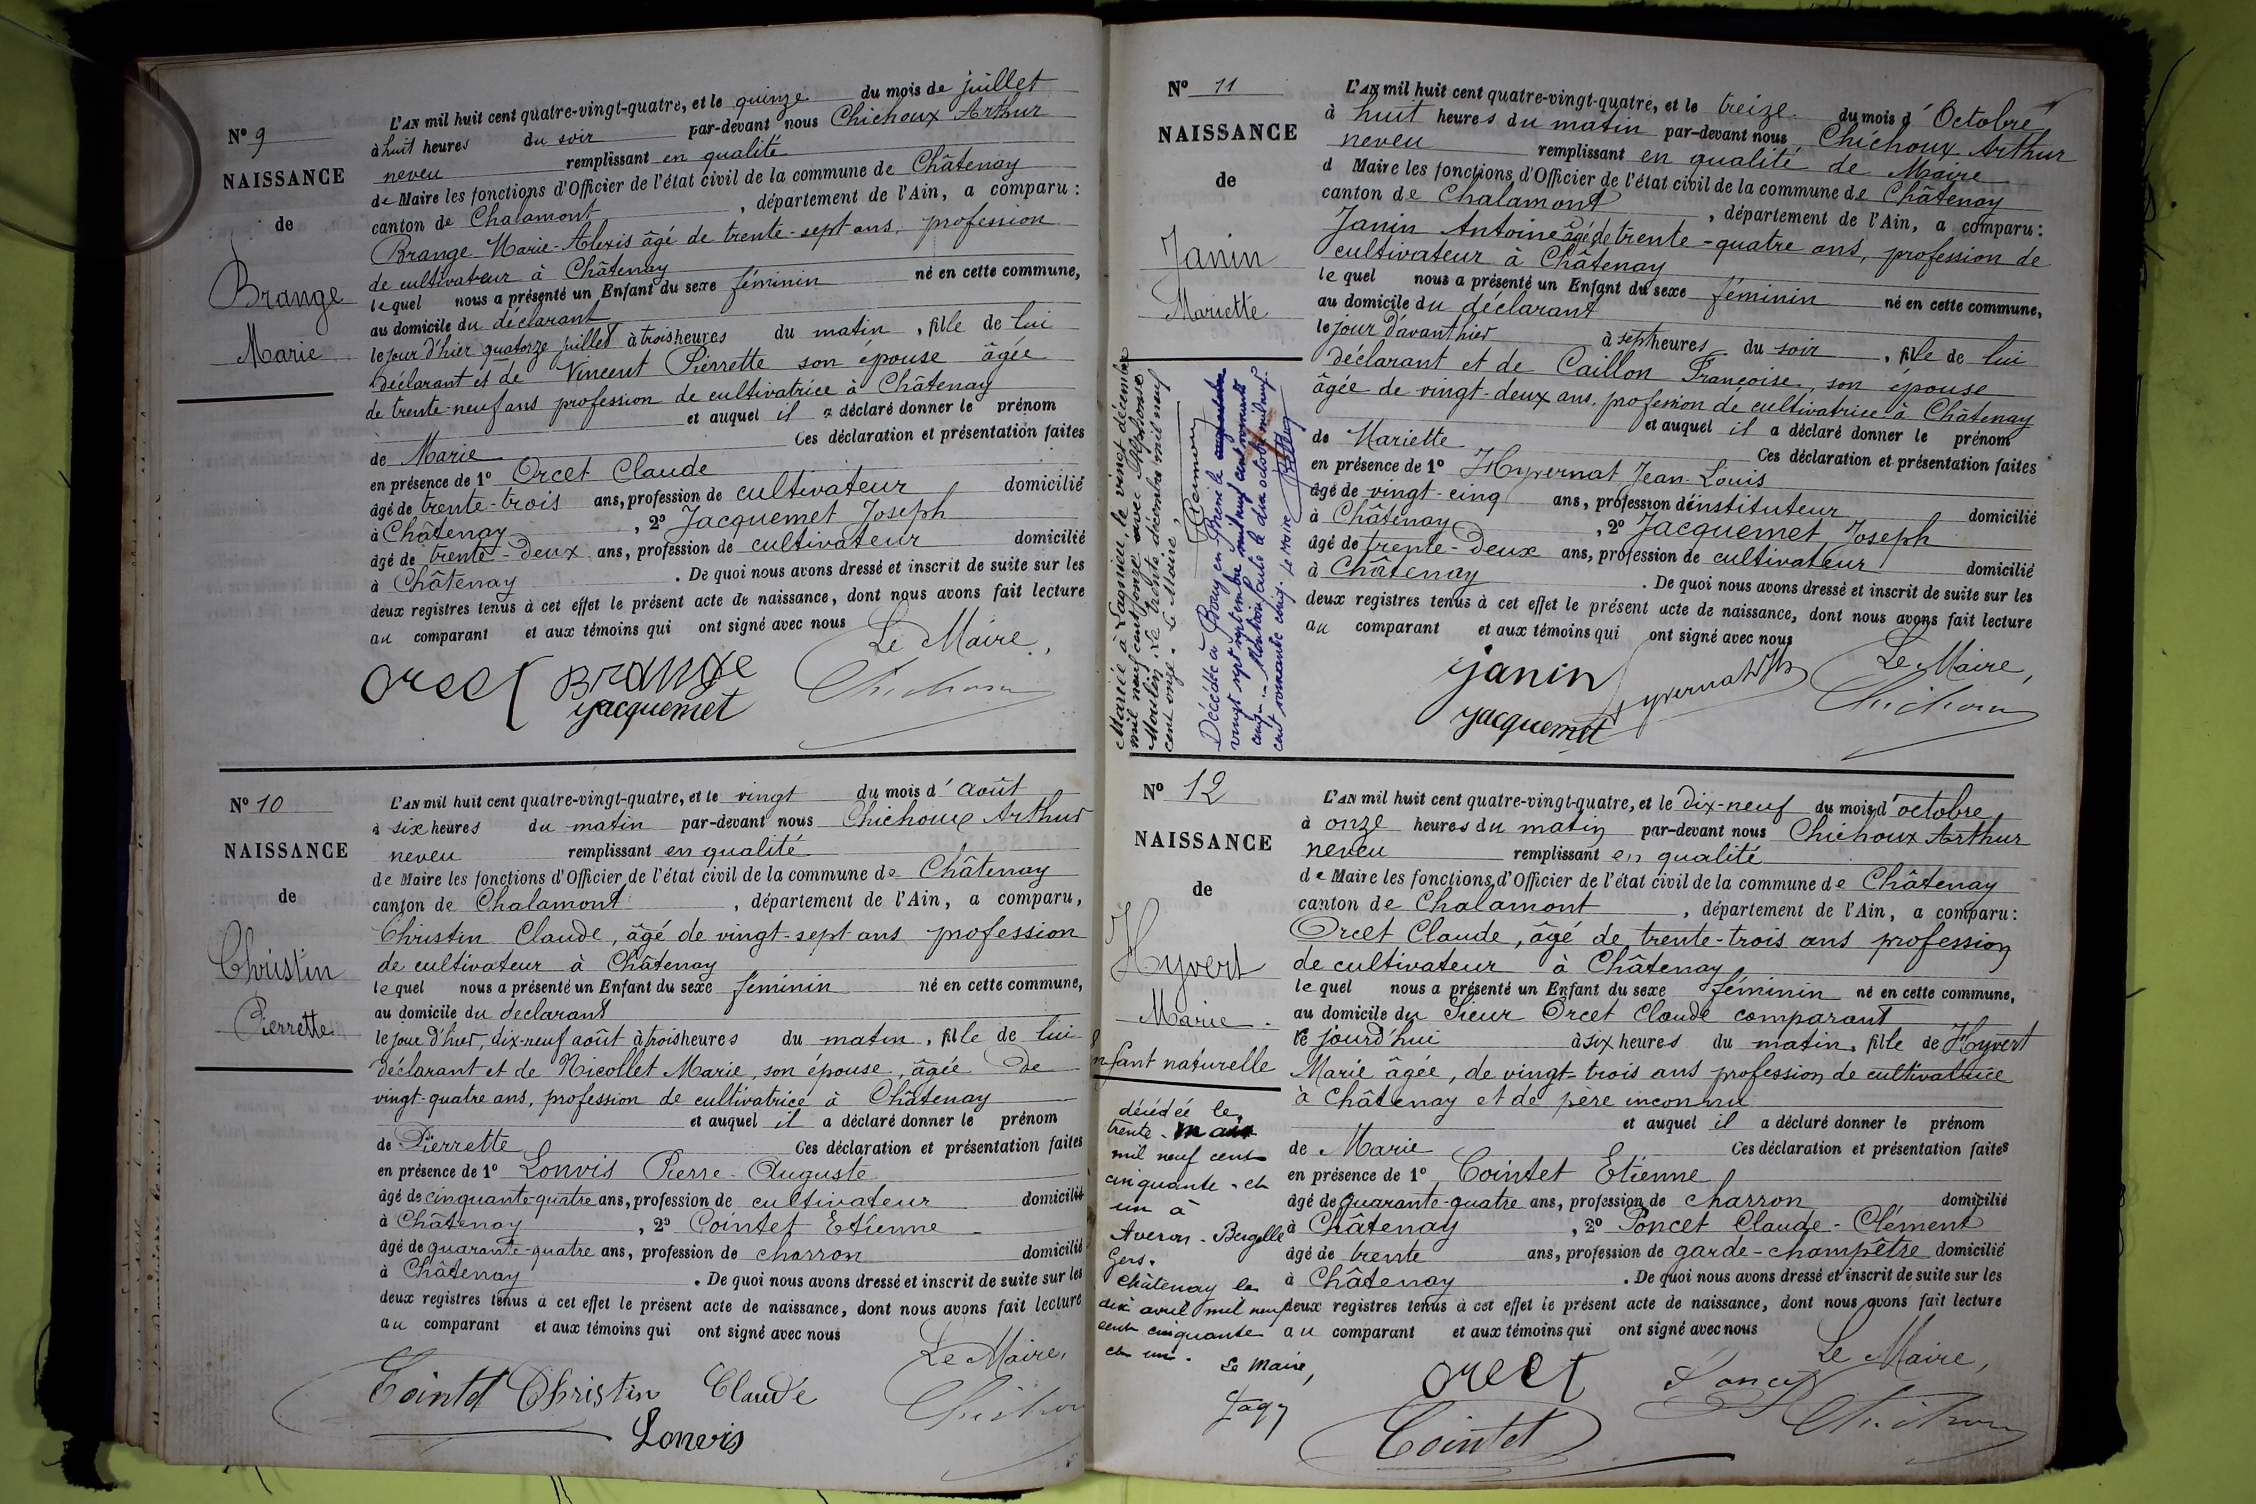 N° 9
NAISSANCE
de
Brange
Marie
L'AN mil huit cent quatre-vingt-quatre, et le quinze du mois de juillet
à huit heures du soir par-devant nous Chichoux Arthur
neveu remplissant en qualité
de Maire les fonctions d'Officier de l'état civil de la commune de Châtenay
canton de Chalamont, département de l'Ain, a comparu :
Brange Marie-Alexis âgé de trente-sept ans, profession
de cultivateur à Châtenay
lequel nous a présenté un Enfant du sexe féminin né en cette commune,
au domicile du déclarant
le jour d'hier quatorze juillet à trois heures du matin, fille de lui
déclarant et de Vincent Pierrette son épouse âgée
de trente-neuf ans profession de cultivatrice à Châtenay
et auquel il a déclaré donner le prénom
de Marie Ces déclaration et présentation faites
en présence de 1° Orcet Claude
âgé de trente-trois ans, profession de cultivateur domicilié
à Châtenay, 2° Jacquemet Joseph
âgé de trente-deux ans, profession de cultivateur domicilié
à Châtenay. De quoi nous avons dressé et inscrit de suite sur les
deux registres tenus à cet effet le présent acte de naissance, dont nous avons fait lecture
au comparant et aux témoins qui ont signé avec nous
Le Maire,
Orcet Brange Chichoux
Jacquemet
N° 10
NAISSANCE
de
Christin
Pierrette
L'AN mil huit cent quatre-vingt-quatre, et le vingt du mois d'août
à six heures du matin par-devant nous Chichoux Arthur
neveu remplissant en qualité
de Maire les fonctions d'Officier de l'état civil de la commune de Châtenay
canton de Chalamont, département de l'Ain, a comparu,
Christin Claude, âgé de vingt-sept ans profession
de cultivateur à Châtenay
lequel nous a présenté un Enfant du sexe féminin né en cette commune,
au domicile du declarant
le jour d'hier, dix-neuf août à trois heures du matin, fille de lui
déclarant et de Nicollet Marie, son épouse, âgée de
vingt-quatre ans, profession de cultivatrice à Châtenay
et auquel il a déclaré donner le prénom
de Pierrette Ces déclaration et présentation faites
en présence de 1° Lonvis Pierre-Auguste
âgé de cinquante-quatre ans, profession de cultivateur domicilié
à Châtenay, 2° Cointet Etienne
âgé de quarante-quatre ans, profession de charron domicilié
à Châtenay. De quoi nous avons dressé et inscrit de suite sur les
deux registres tenus à cet effet le présent acte de naissance, dont nous avons fait lecture
au comparant et aux témoins qui ont signé avec nous
Le Maire,
Cointet Christin Claude Chichoux
Lonvis
N° 11
NAISSANCE
de
Janin
Mariette
Mariée à Lagnieu, le vingt décembre
mil neuf cent onze avec Alphonse
Moulin. Le trente décembre mil neuf
cent onze. Le Maire,
Décédée à Bourg en Bresse le
vingt sept septembre mil neuf cent soixante
cinq. Montrou faule le dix octobre mil neuf
cent soixante cinq. Le Maire
L'AN mil huit cent quatre-vingt-quatre, et le treize du mois d'Octobre
à huit heures du matin par-devant nous Chichoux Arthur
neveu remplissant en qualité de Maire
d Maire les fonctions d'Officier de l'état civil de la commune de Châtenay
canton de Chalamont, département de l'Ain, a comparu :
Janin Antoine âgé de trente-quatre ans, profession de
cultivateur à Châtenay
lequel nous a présenté un Enfant du sexe féminin né en cette commune,
au domicile du déclarant
le jour d'avant hier à sept heures du soir, fille de lui
déclarant et de Caillon Françoise, son épouse
âgée de vingt-deux ans, profession de cultivatrice à Châtenay
et auquel il a déclaré donner le prénom
de Mariette Ces déclaration et présentation faites
en présence de 1° Hyvernat Jean-Louis
âgé de vingt-cinq ans, profession d'instituteur domicilié
à Châtenay, 2° Jacquemet Joseph
âgé de trente-deux ans, profession de cultivateur domicilié
à Châtenay. De quoi nous avons dressé et inscrit de suite sur les
deux registres tenus à cet effet le présent acte de naissance, dont nous avons fait lecture
au comparant et aux témoins qui ont signé avec nous
Le Maire,
Janin Hyvernat Chichoux
Jacquemet
N° 12
NAISSANCE
de
Hyvert
Marie.
Enfant naturelle
décédée le
trente mai
mil neuf cent
cinquante et
un à
Averon-Bergelle
Gers.
Châtenay le
dix avril mil neuf
cent cinquante
et un.
Le Maire,
L'AN mil huit cent quatre-vingt-quatre, et le dix-neuf du mois d'octobre
à onze heures du matin par-devant nous Chichoux Arthur
neveu remplissant en qualité
de Maire les fonctions d'Officier de l'état civil de la commune de Châtenay
canton de Chalamont, département de l'Ain, a comparu :
Orcet Claude, âgé de trente-trois ans profession
de cultivateur à Châtenay
lequel nous a présenté un Enfant du sexe féminin né en cette commune,
au domicile du Sieur Orcet Claude comparant
le jourd'hui à six heures du matin, fille de Hyvert
Marie âgée, de vingt-trois ans profession de cultivatrice
à Châtenay et de père inconnu
et auquel il a déclaré donner le prénom
de Marie Ces déclaration et présentation faites
en présence de 1° Cointet Etienne
âgé de quarante-quatre ans, profession de charron domicilié
à Châtenay, 2° Poncet Claude-Clément
âgé de trente ans, profession de garde-champêtre domicilié
à Châtenay. De quoi nous avons dressé et inscrit de suite sur les
deux registres tenus à cet effet le présent acte de naissance, dont nous avons fait lecture
au comparant et aux témoins qui ont signé avec nous
Le Maire,
Orcet Poncet Chichoux
Cointet